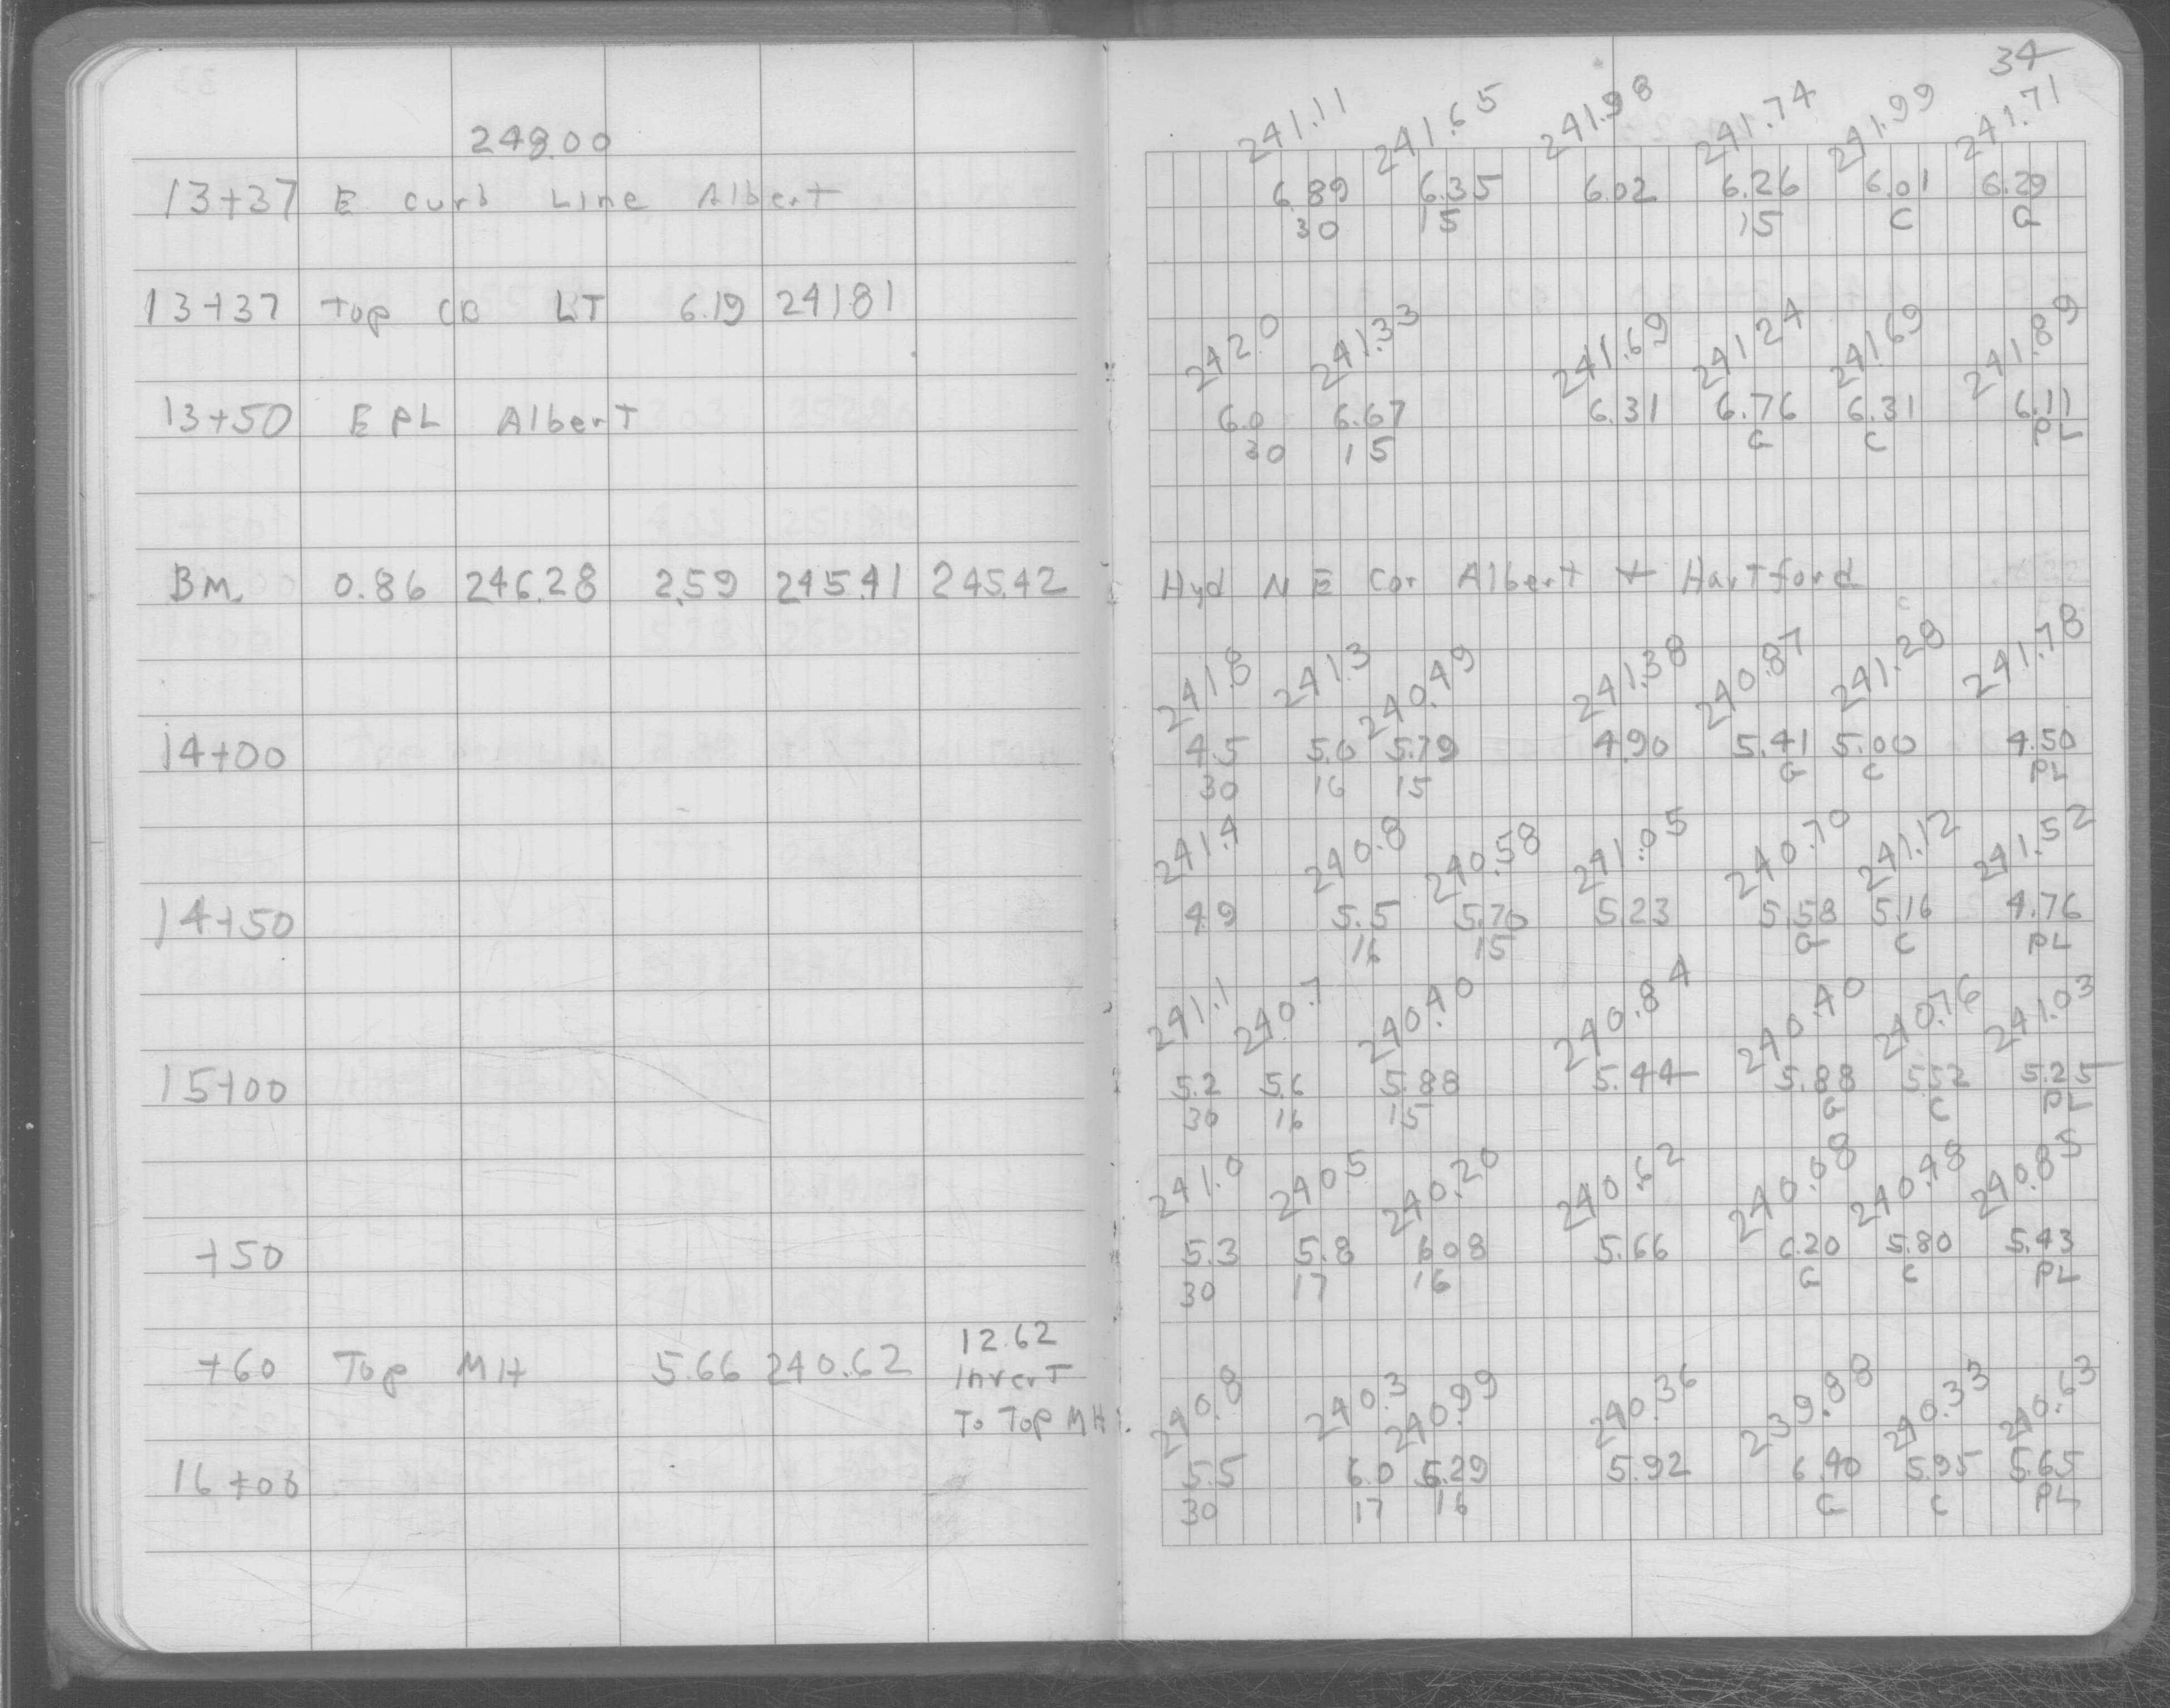 34
248.00
241.11 241.65 241.98 241.74 241.99 241.71
13+37 E curb Line Albert 6.89 6.35 6.02 6.26 6.01 6.29
30 15 15 C G
13+37 Top CB LT 6.19 241.81
242.0 241.33 241.69 241.24 241.69 241.89
13+50 E PL Albert 6.0 6.67 6.31 6.76 6.31 6.11
30 15 G C PL
BM. 0.86 246.28 2.59 245.41 245.42 Hyd N E Cor Albert + Hartford
241.8 241.3 240.49 241.38 240.87 241.28 241.78
14+00 4.5 5.0 5.79 4.90 5.41 5.00 4.50
30 16 15 G C PL
241.4 240.8 240.58 241.05 240.70 241.12 241.52
14+50 4.9 5.5 5.70 5.23 5.58 5.16 4.76
16 15 G C PL
241.1 240.7 240.40 240.84 240.40 240.76 241.03
15+00 5.2 5.6 5.88 5.44 5.88 5.52 5.25
30 16 15 G C PL
241.0 240.5 240.20 240.62 240.08 240.48 240.85
+50 5.3 5.8 6.08 5.66 6.20 5.80 5.43
30 17 16 G C PL
12.62
+60 Top MH 5.66 240.62 Invert
To Top MH
240.8 240.3 240.99 240.36 239.88 240.33 240.63
16+03 5.5 6.0 5.29 5.92 6.40 5.95 5.65
30 17 16 G C PL